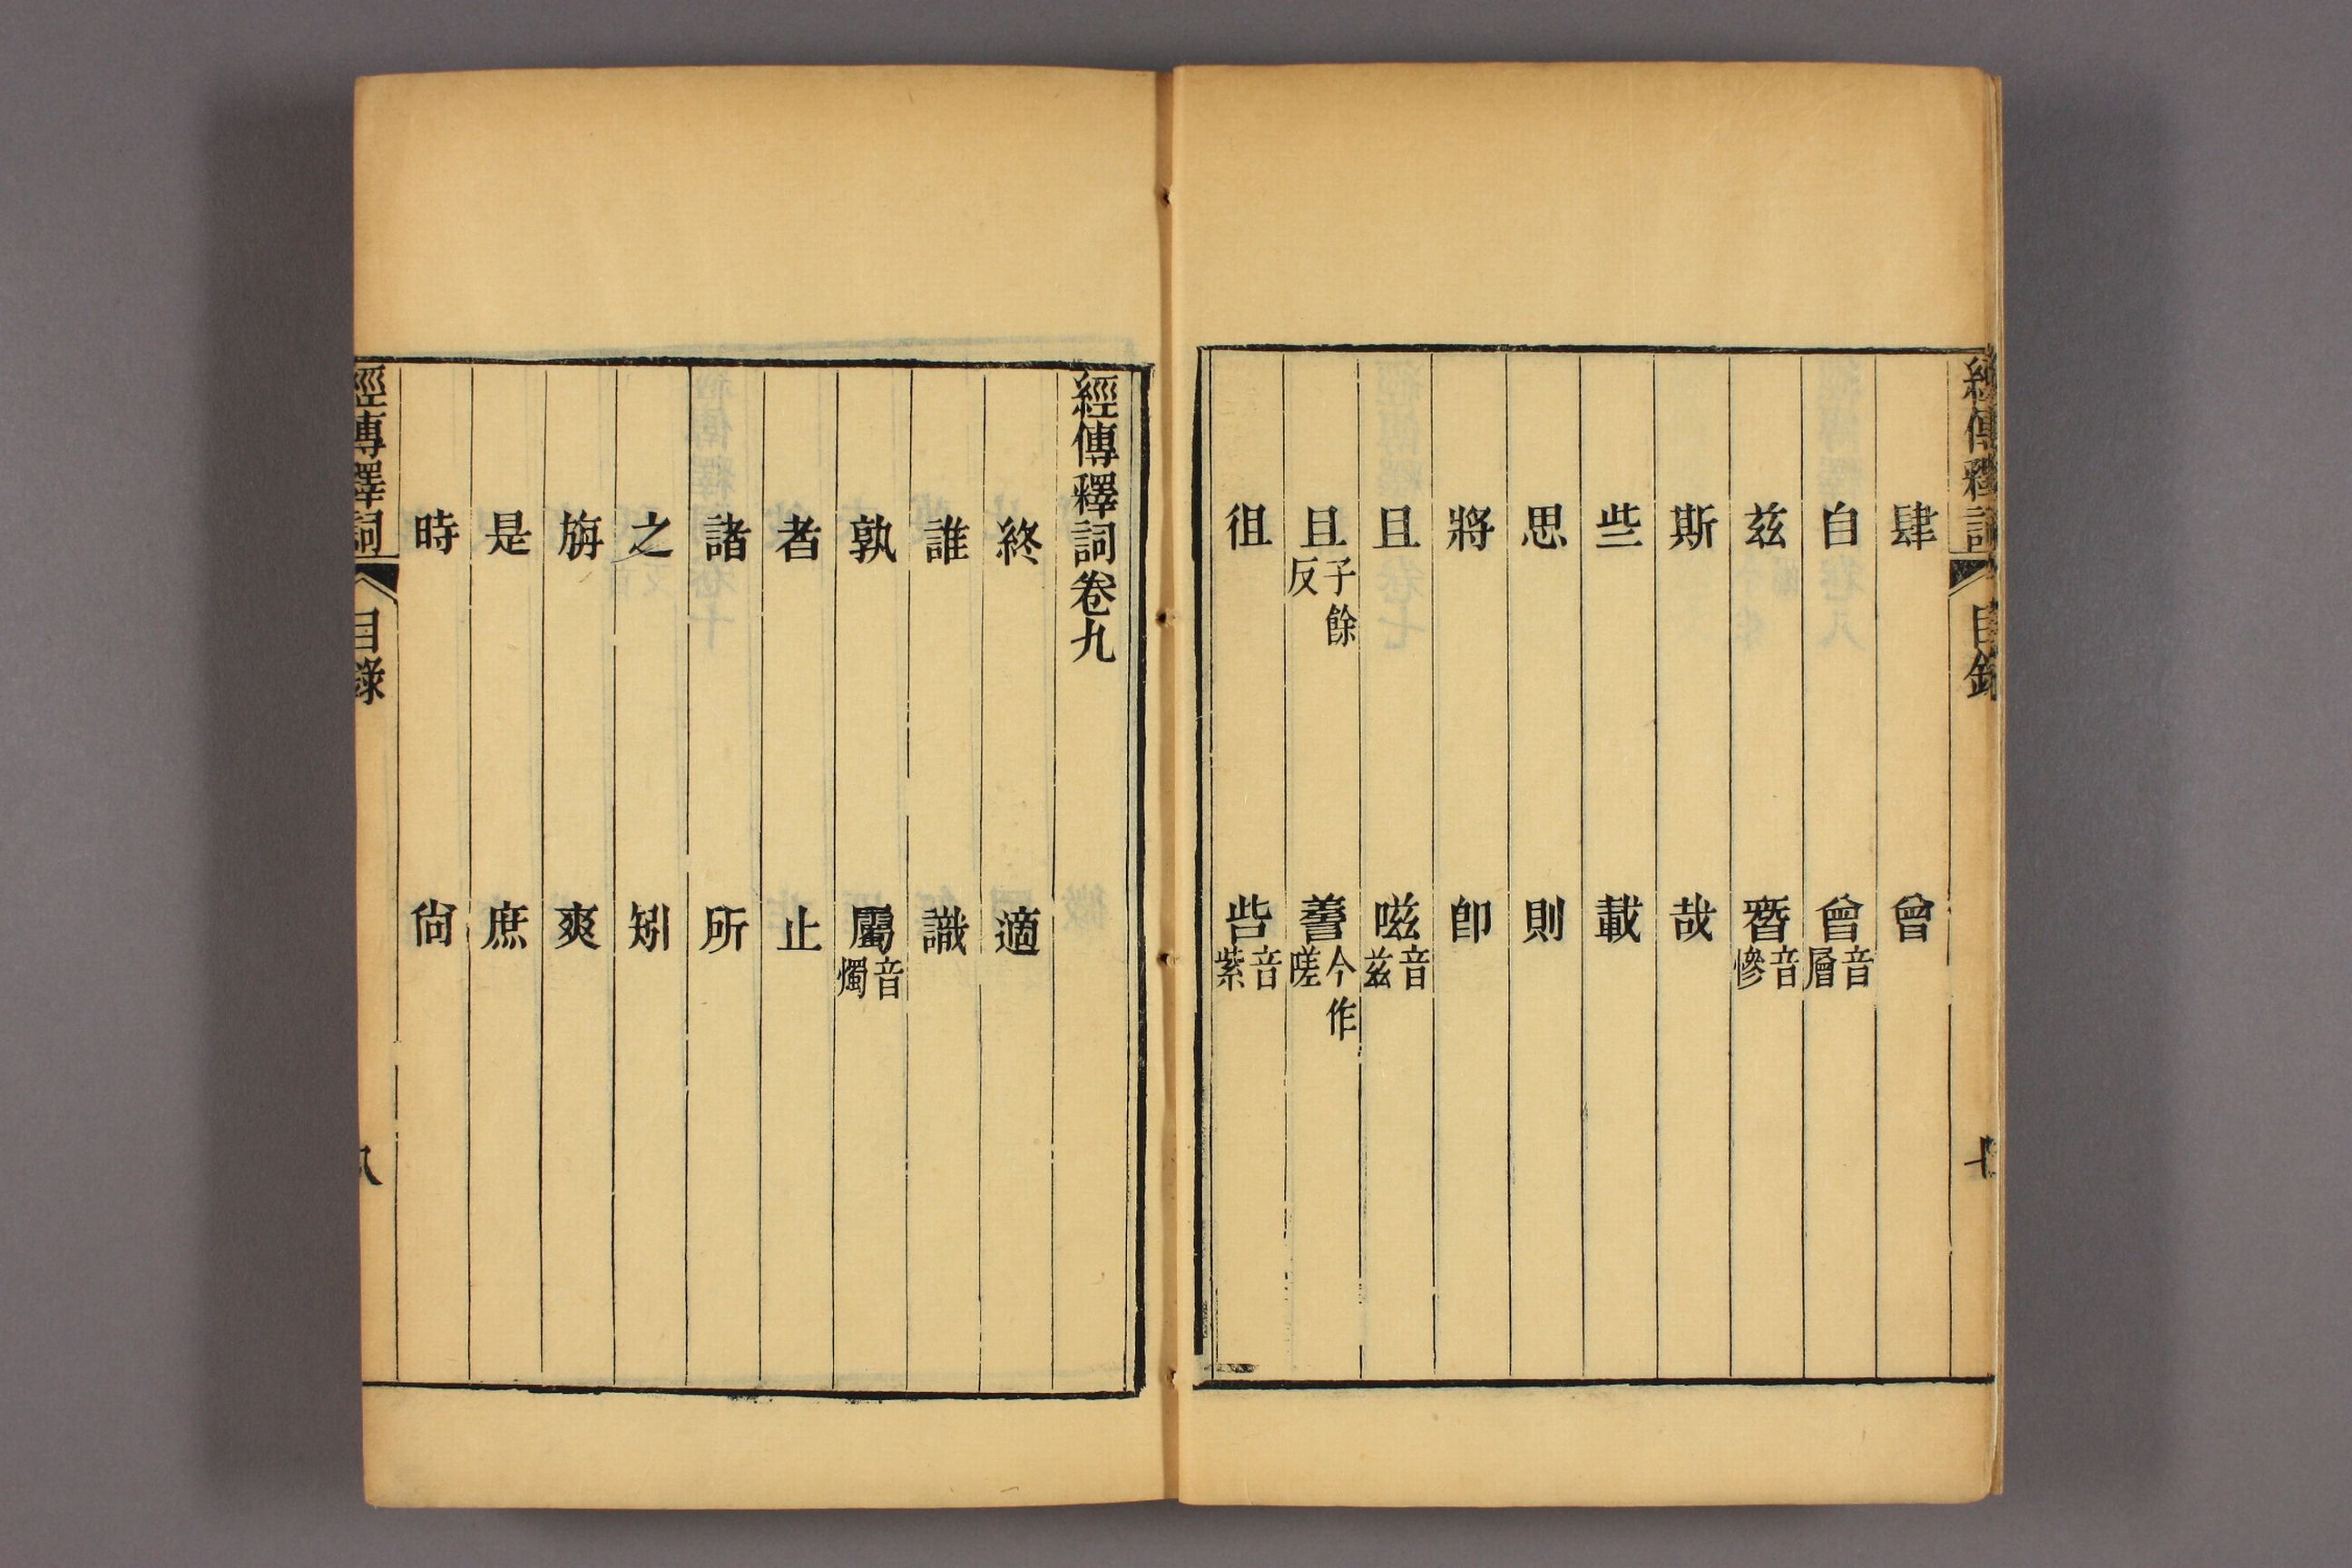 經傳釋詞 目錄 七
肆 曾
自 曾音層
茲 朁音慘
斯 哉
些 載
思 則
將 卽
且 嗞音茲
且子餘反 𧪜今作嗟
徂 呰音紫
經傳釋詞卷九
終 適
誰 識
孰 屬音燭
者 止
諸 所
之 矧
旃 爽
是 庶
時 尙
經傳釋詞 目錄 八